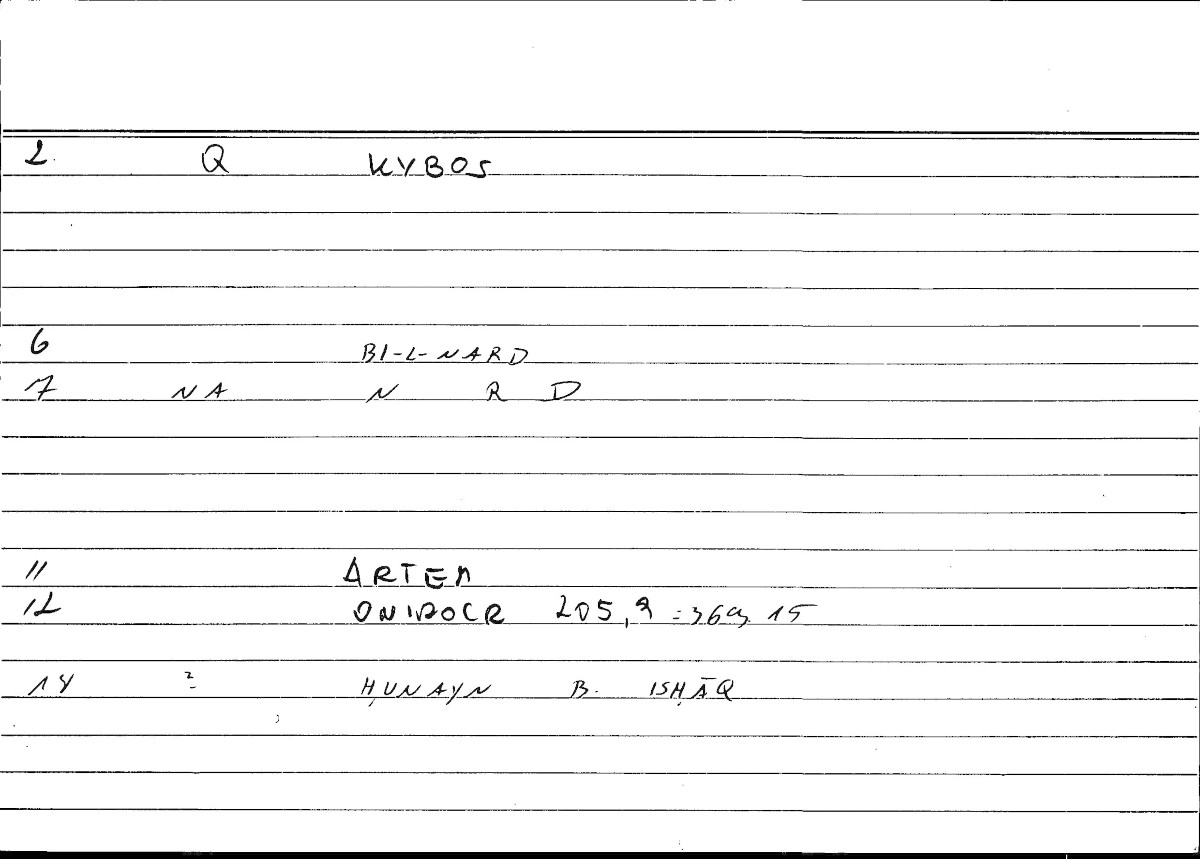 2 Q KYBOS
6 BI-L-NARD
7 NA N R D
11 ARTEM
12 ONIROCR 205,9 = 369, 15
14 2 ḤUNAYN B. ISḤĀQ